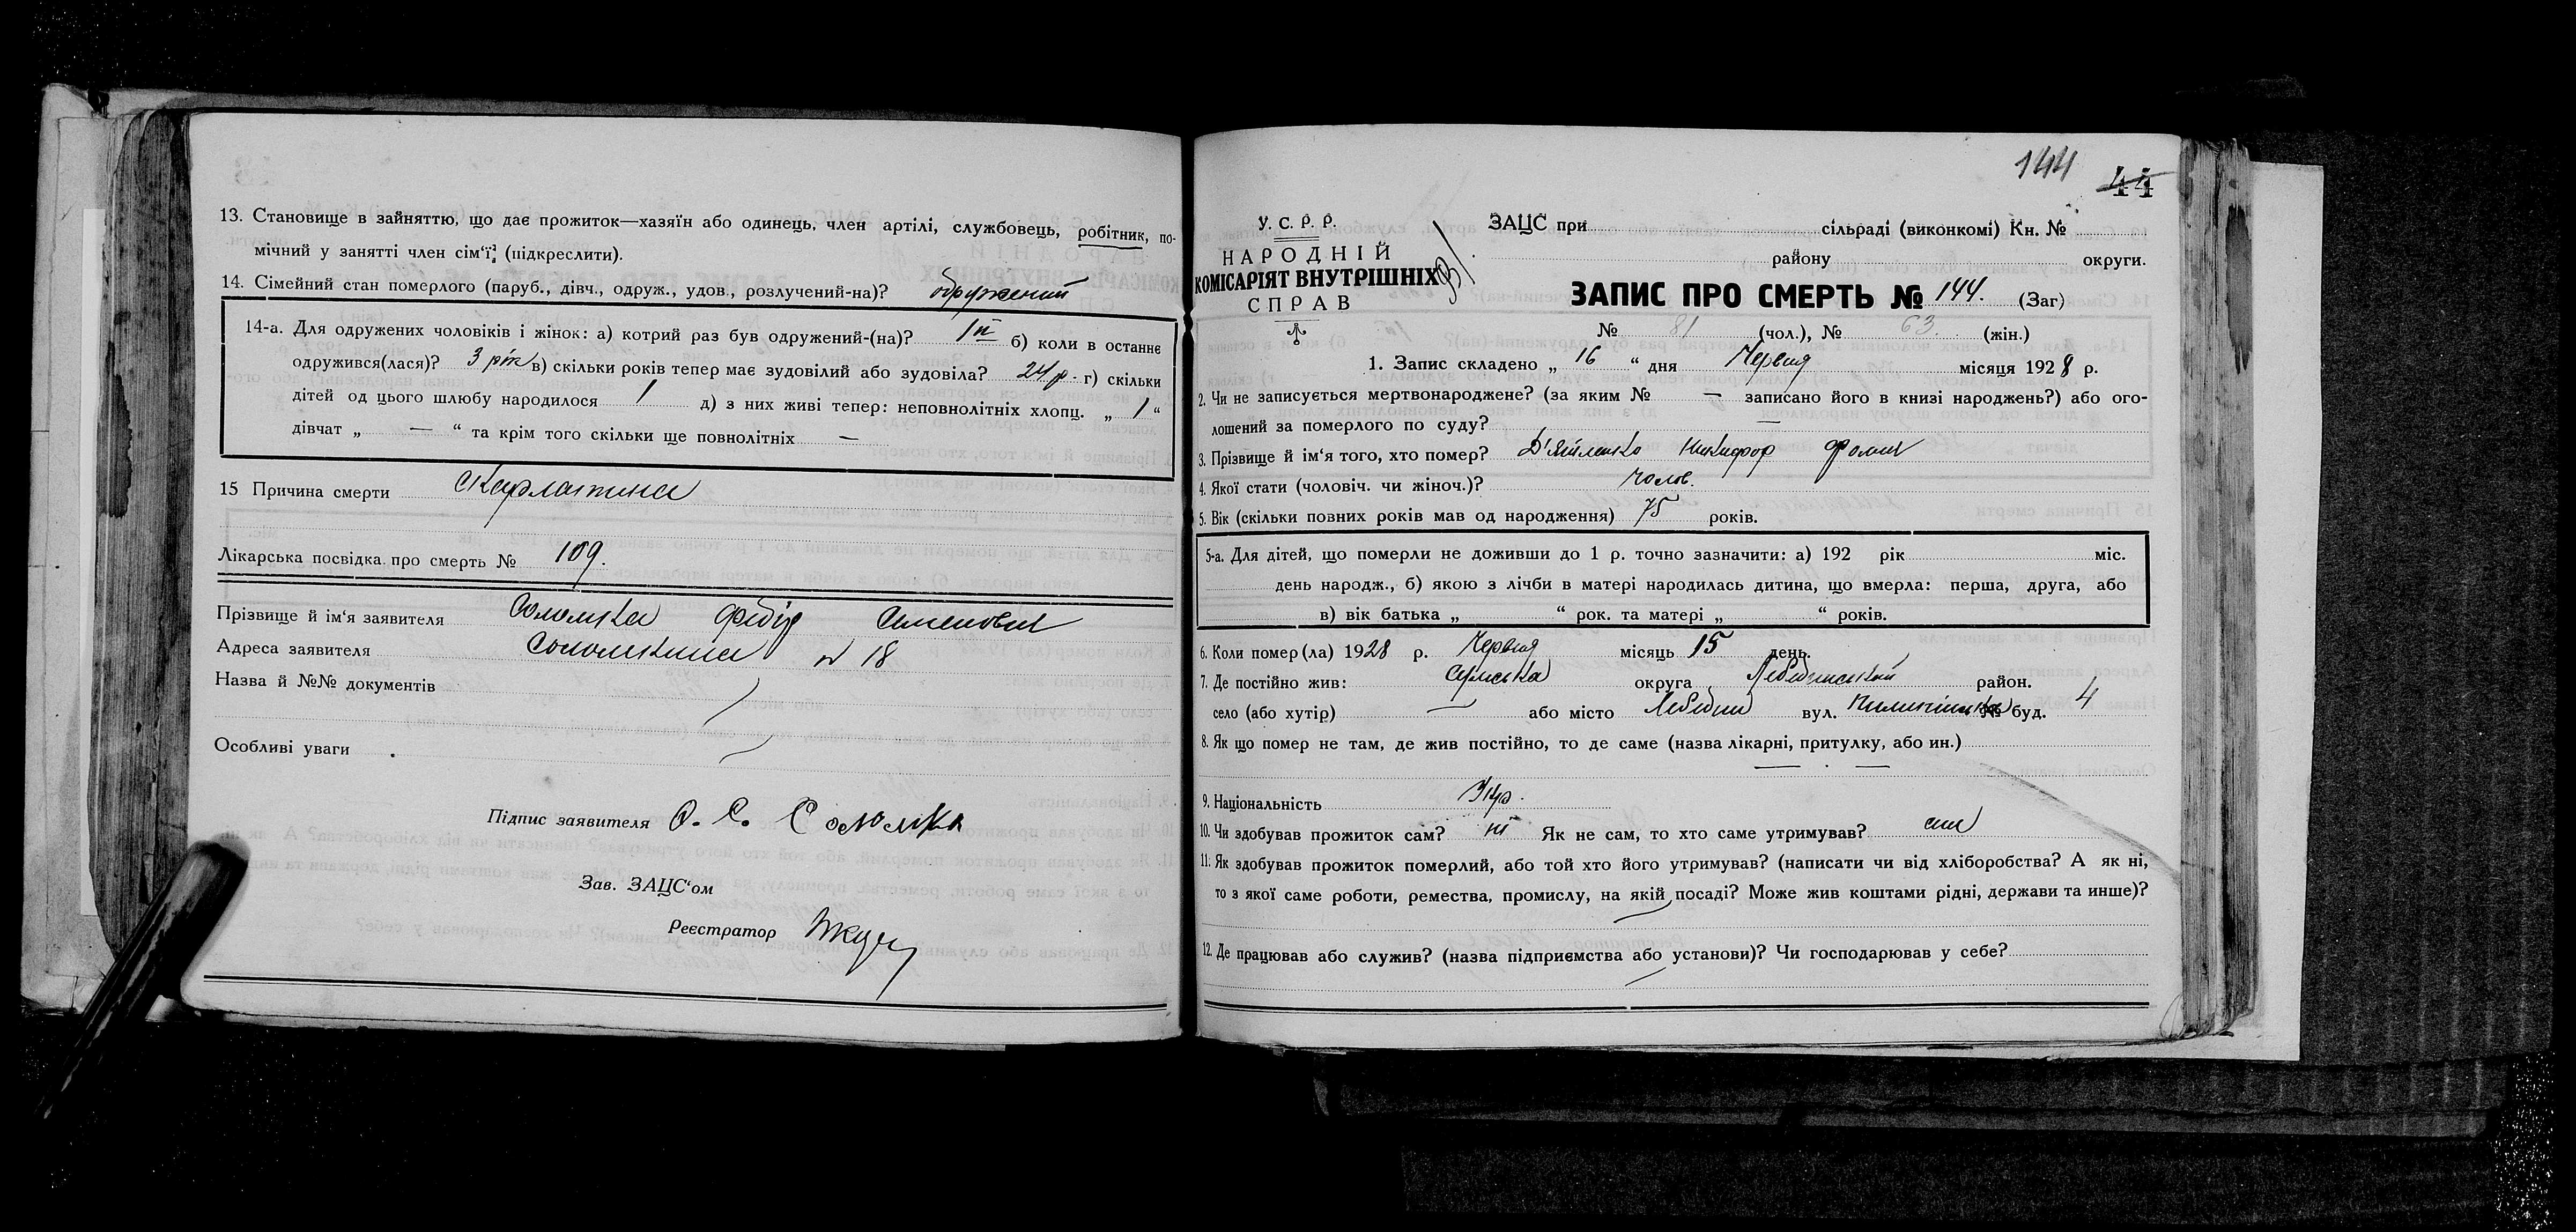 13. Становище в зайняттю, що дає прожиток—хазяїн або одинець, член артілі, службовець, робітник, по-
мічний у занятті член сім'ї, (підкреслити).
14. Сімейний стан померлого (паруб., дівч., одруж., удов., розлучений-на)? одружений
14-а. Для одружених чоловіків і жінок: а) котрий раз був одружений-(на)? 1й б) коли в останнє
одружився(лася)? 3 рік в) скільки років тепер має зудовілий або зудовіла? 24 р. г) скільки
дітей од цього шлюбу народилося 1 д) з них живі тепер: неповнолітніх хлопц. „ 1 “
дівчат „ — “ та крім того скільки ще повнолітніх —
15 Причина смерти Скарлатина
Лікарська посвідка про смерть № 109.
Прізвище й ім'я заявителя Соломка Федір Семенович
Адреса заявителя № 18
Назва й №№ документів
Особливі уваги
Підпис заявителя О. С. Соломка
Зав. ЗАЦС'ом
Реєстратор
144 44
У. С. Р. Р.
НАРОДНІЙ
КОМІСАРІЯТ ВНУТРІШНІХ
СПРАВ
ЗАЦС при сільраді (виконкомі) Кн. №
району округи.
ЗАПИС ПРО СМЕРТЬ № 144. (Заг)
№ 81 (чол.), № 63. (жін.)
1. Запис складено „ 16 “ дня Червня місяця 1928 р.
2. Чи не записується мертвонароджене? (за яким № — записано його в книзі народжень?) або ого-
лошений за померлого по суду? —
3. Прізвище й ім'я того, хто помер? Никифор Фомич
4. Якої стати (чоловіч. чи жіноч.)? Чолов.
5. Вік (скільки повних років мав од народження) 75 років.
5-а. Для дітей, що померли не доживши до 1 р. точно зазначити: а) 192 рік міс.
день народж., б) якою з лічби в матері народилась дитина, що вмерла: перша, друга, або
в) вік батька „ “ рок. та матері „ “ років.
6. Коли помер(ла) 1928 р. Червня місяць 15 день.
7. Де постійно жив: Сумська округа Лебединський район.
село (або хутір) — або місто Лебедин вул. № буд. 4
8. Як що помер не там, де жив постійно, то де саме (назва лікарні, притулку, або ин.)
— . —
9. Національність Укр.
10. Чи здобував прожиток сам? ні Як не сам, то хто саме утримував? син
11. Як здобував прожиток померлий, або той хто його утримував? (написати чи від хліборобства? А як ні,
то з якої саме роботи, ремества, промислу, на якій посаді? Може жив коштами рідні, держави та инше)?
12. Де працював або служив? (назва підприємства або установи)? Чи господарював у себе?